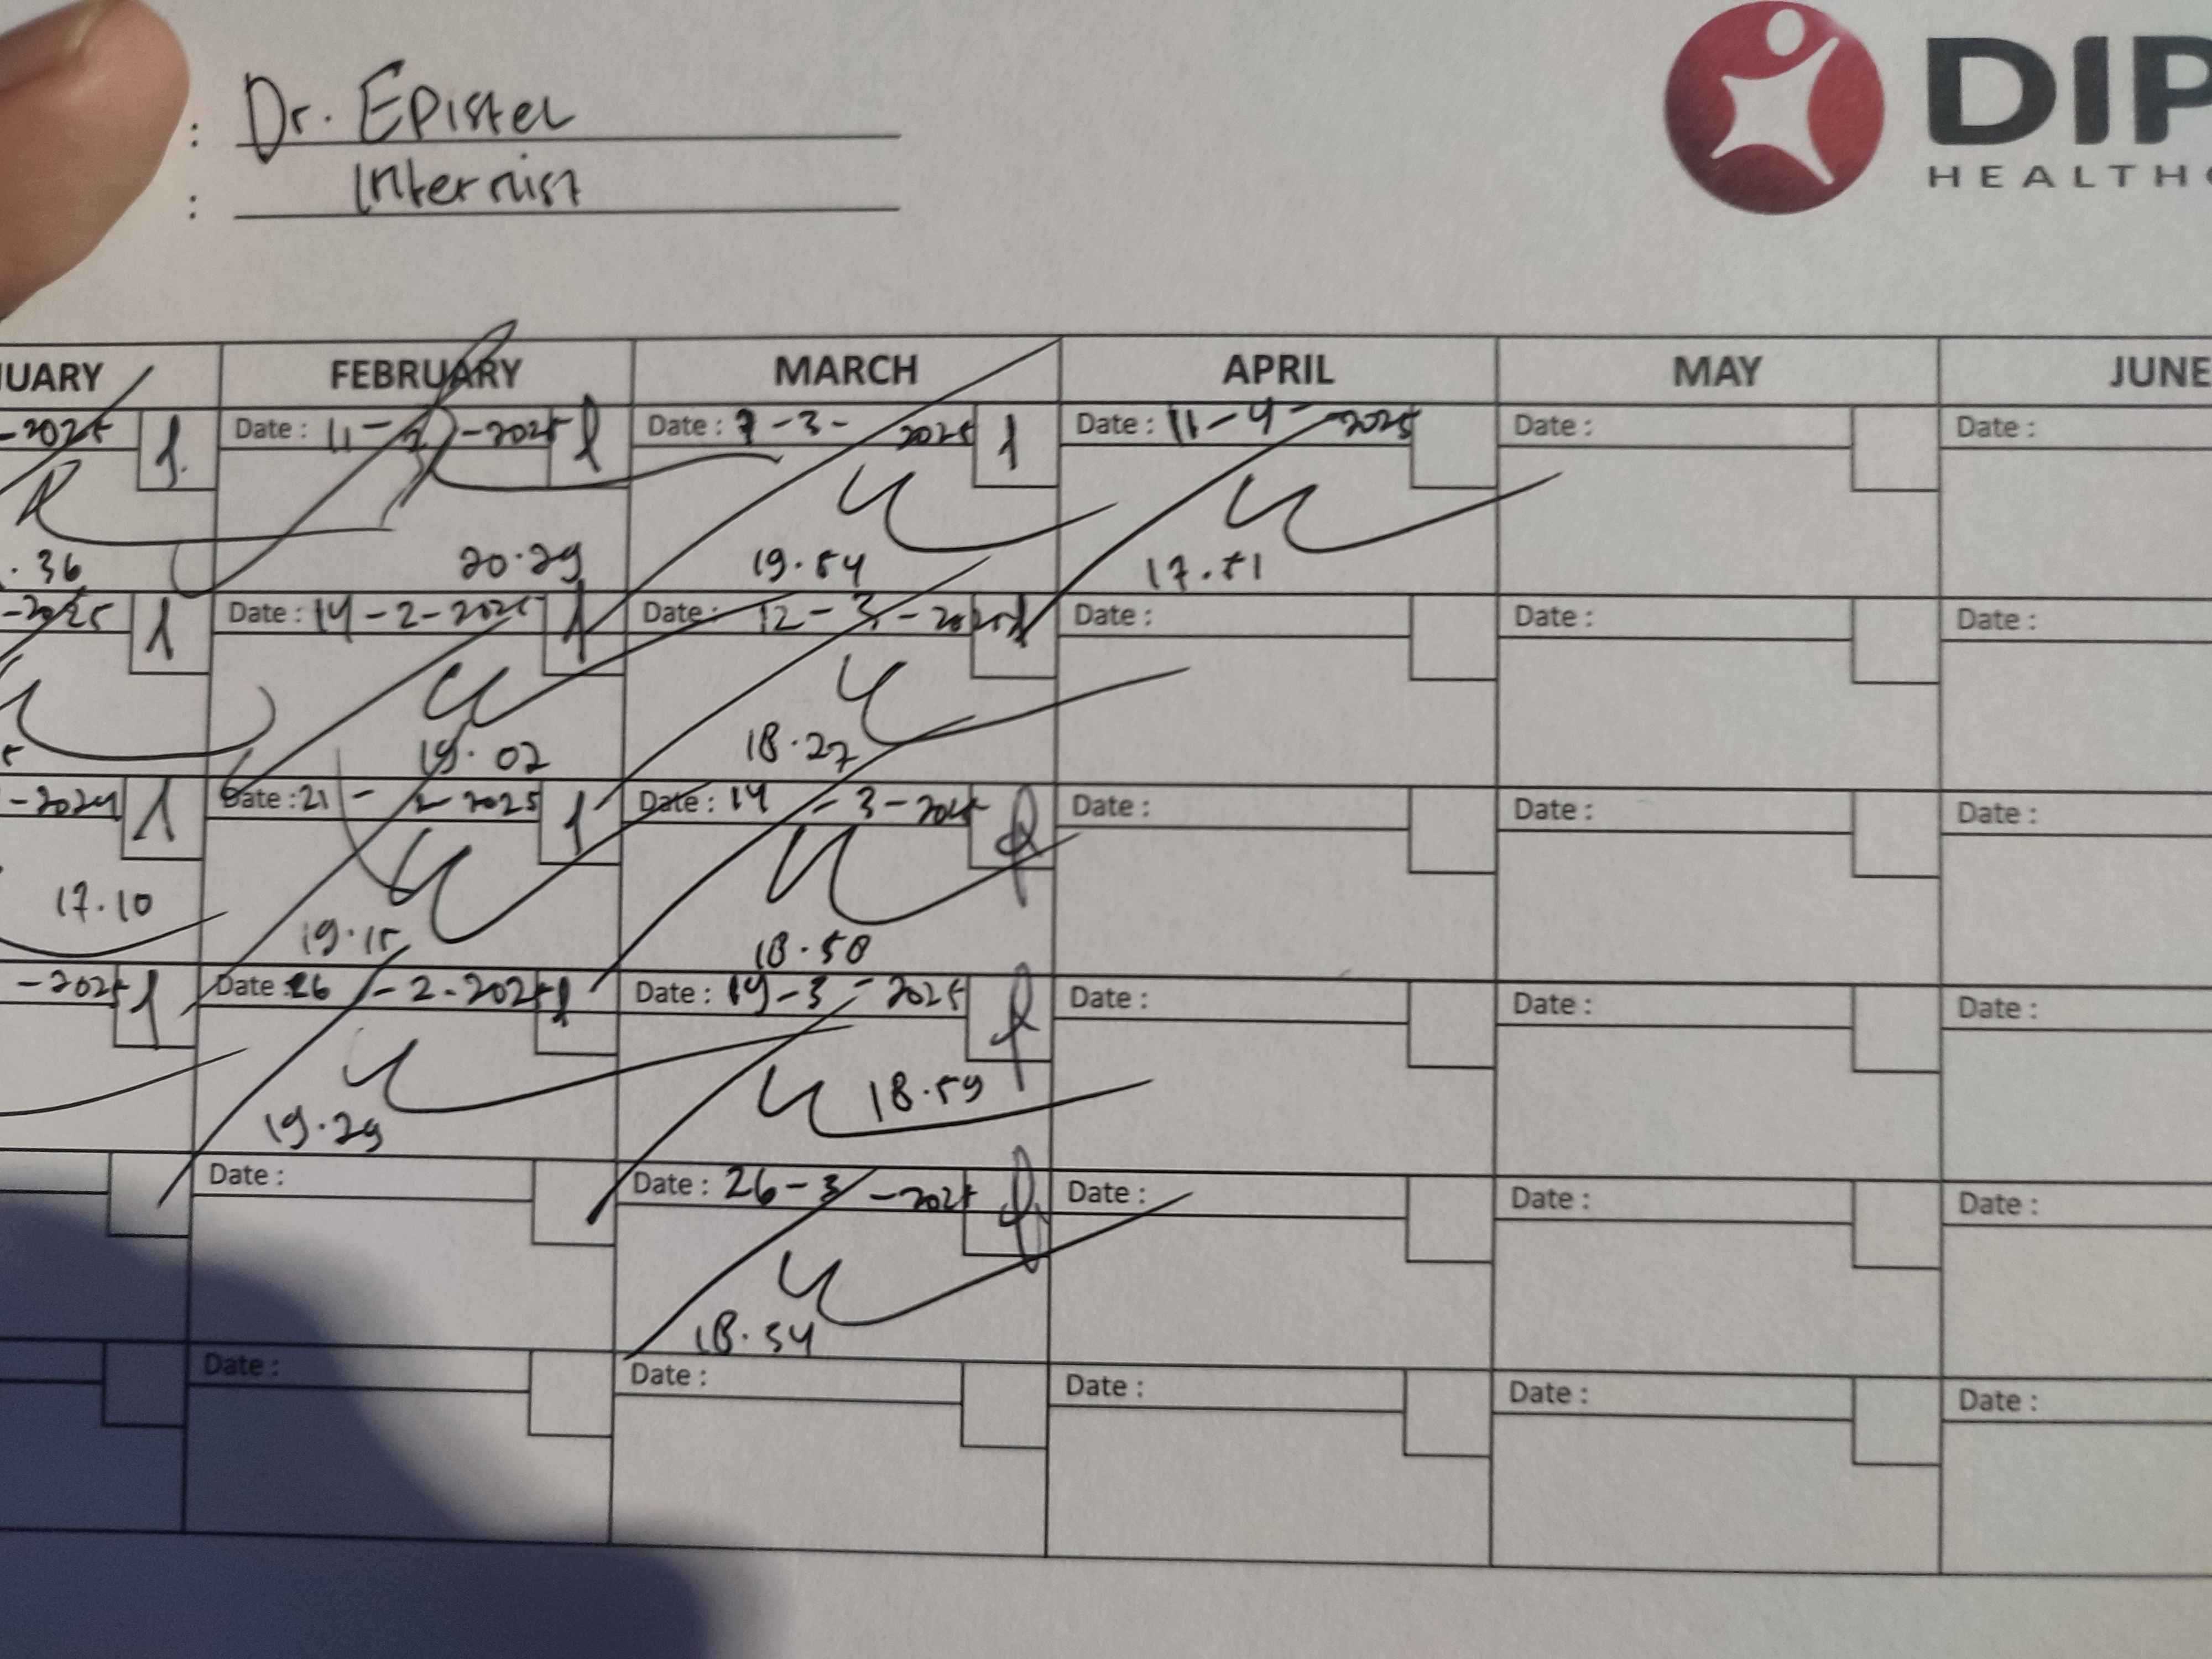 : Dr. Epistel
: Internist
DIP
HEALTHC
UARY FEBRUARY MARCH APRIL MAY JUNE
-2025 Date : 11-2-2025 Date : 7-3-2025 Date : 11-4-2025 Date : Date :
.36 20.29 19.54 17.51
-2025 Date : 14-2-2025 Date : 12-3-2025 Date : Date : Date :
19.02 18.27
-2024 Date : 21-2-2025 Date : 14-3-2025 Date : Date : Date :
17.10 19.15 18.50
-2025 Date : 26-2-2025 Date : 19-3-2025 Date : Date : Date :
19.29 18.59
Date : Date : 26-3-2025 Date : Date : Date :
18.54
Date : Date : Date : Date : Date :